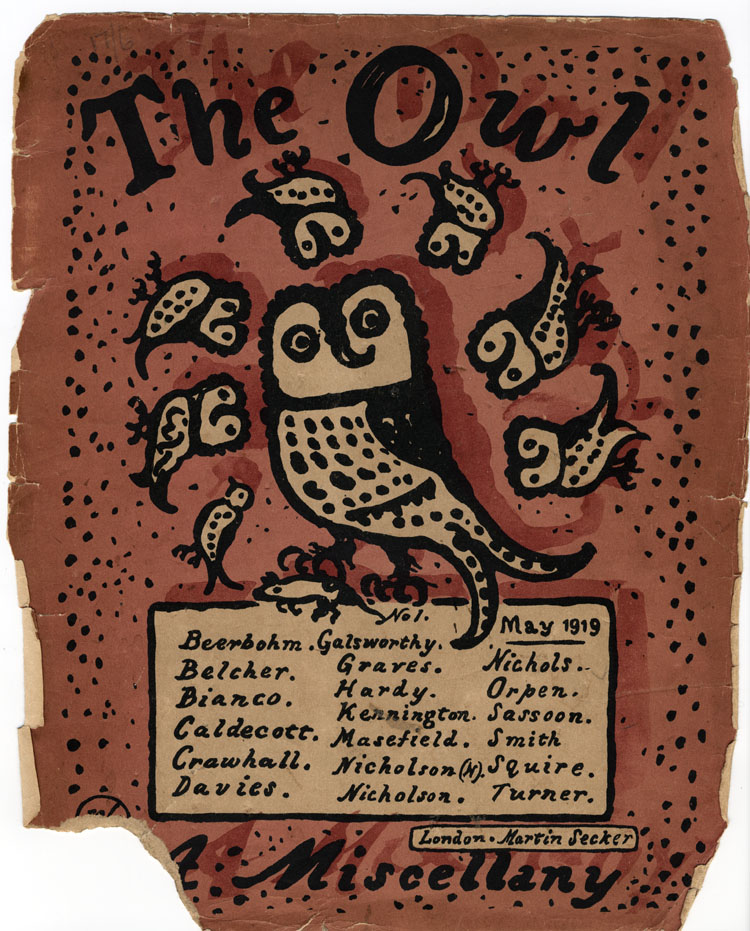 The Owl
No 1.
May 1919
Beerbohm. Galsworthy.
Belcher. Graves. Nichols.
Bianco. Hardy. Orpen.
Caldecott. Kennington. Sassoon.
Crawhall. Masefield. Smith
Davies. Nicholson (N). Squire.
Nicholson. Turner.
London. Martin Secker
A Miscellany